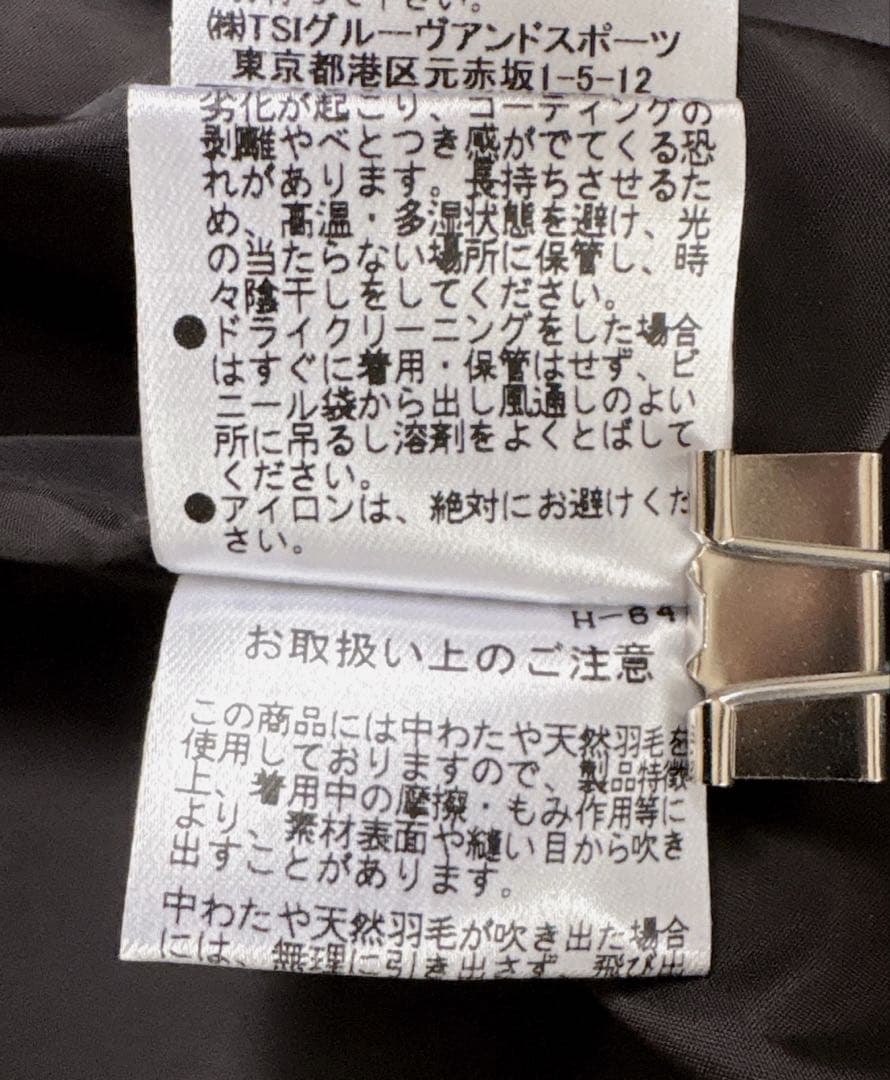 ㈱TSIグルーヴアンドスポーツ
東京都港区元赤坂1-5-12
劣化が起こり、コーティングの
剥離やべとつき感がでてくる恐
れがあります。長持ちさせるた
め、高温・多湿状態を避け、光
の当たらない場所に保管し、時
々陰干しをしてください。
●ドライクリーニングをした場合
はすぐに着用・保管はせず、ビ
ニール袋から出し風通しのよい
所に吊るし溶剤をよくとばして
ください。
●アイロンは、絶対にお避けくだ
さい。
H-64
お取扱い上のご注意
この商品には中わたや天然羽毛を
使用しておりますので、製品特徴
上、着用中の摩擦・もみ作用等に
より、素材表面や縫い目から吹き
出すことがあります。
中わたや天然羽毛が吹き出た場合
には、無理に引き出さず、飛び出